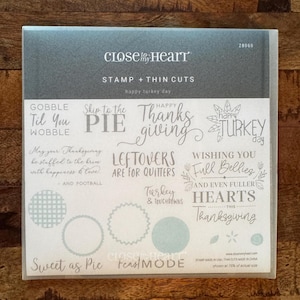 CLOSE to my HEART®
STAMP + THIN CUTS
happy turkey day
GOBBLE
Til You
WOBBLE
Skip to the
PIE
HAPPY
Thanks
giving
happy
TURKEY
day
May your Thanksgiving
be stuffed to the brim
with happiness & love
AND FOOTBALL
LEFTOVERS
ARE FOR QUITTERS
Turkey
& touchdowns
WISHING YOU
Full Bellies
AND EVEN FULLER
HEARTS
THIS
Thanksgiving
Sweet as Pie
feast MODE